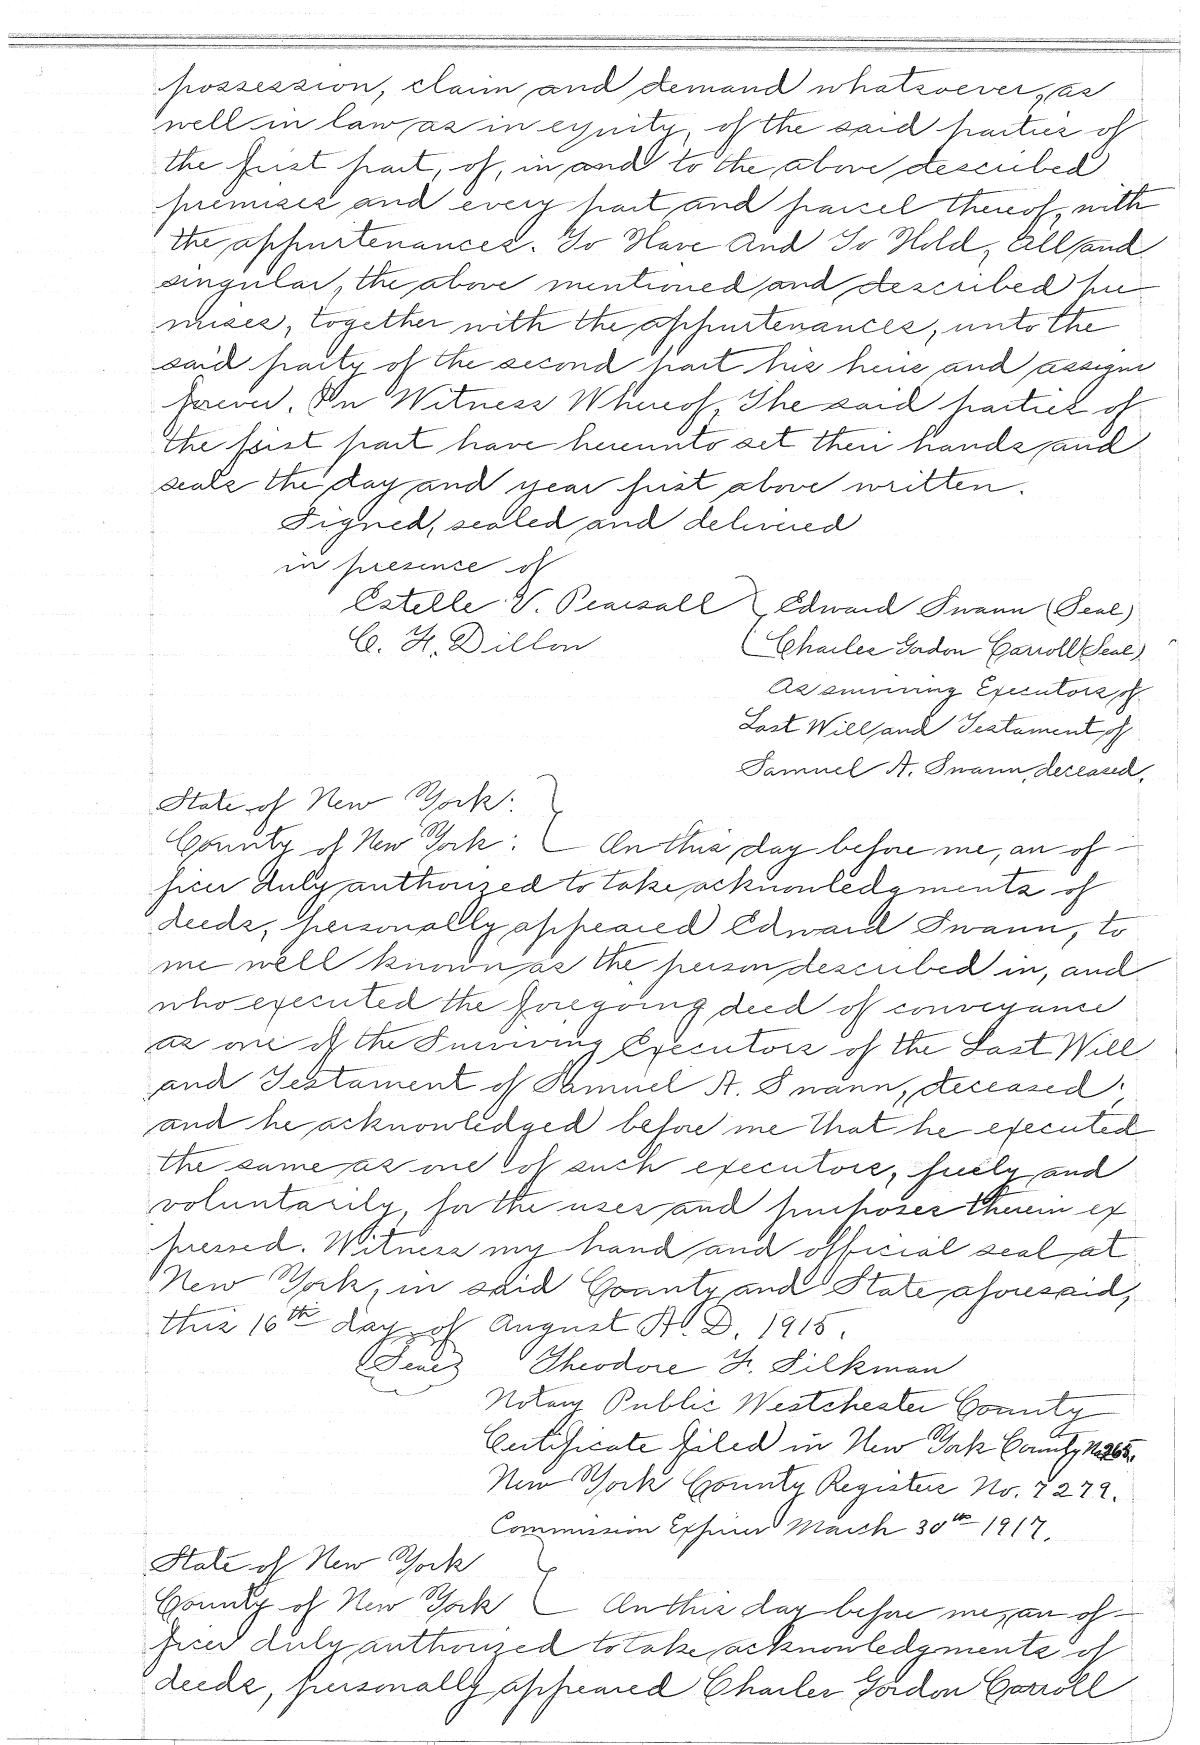 possession, claim and demand whatsoever, as
well in law as in equity, of the said parties of
the first part, of, in and to the above described
premises and every part and parcel thereof, with
the appurtenances. To Have And To Hold, All and
singular, the above mentioned and described pre-
mises, together with the appurtenances, unto the
said party of the second part his heirs and assigns
forever. In Witness Whereof, The said parties of
the first part have hereunto set their hands and
seals the day and year first above written.
Signed, sealed and delivered
in presence of
Estelle V. Pearsall } Edward Swann (Seal)
C. H. Dillon { Charles Gordon Carroll (Seal)
As surviving Executors of
Last Will and Testament of
Samuel A. Swann, deceased.
State of New York: }
County of New York: { On this day before me, an of-
ficer duly authorized to take acknowledgments of
deeds, personally appeared Edward Swann, to
me well known as the person described in, and
who executed the foregoing deed of conveyance
as one of the Surviving Executors of the Last Will
and Testament of Samuel A. Swann, deceased;
and he acknowledged before me that he executed
the same as one of such executors, freely and
voluntarily, for the uses and purposes therein ex
pressed. Witness my hand and official seal at
New York, in said County and State aforesaid,
this 16th day of August A. D. 1915.
(Seal) Theodore F. Silkman
Notary Public Westchester County
Certificate filed in New York County No. 265.
New York County Registers No. 7279.
Commission Expires March 30th 1917.
State of New York }
County of New York { On this day before me, an of-
ficer duly authorized to take acknowledgments of
deeds, personally appeared Charles Gordon Carroll